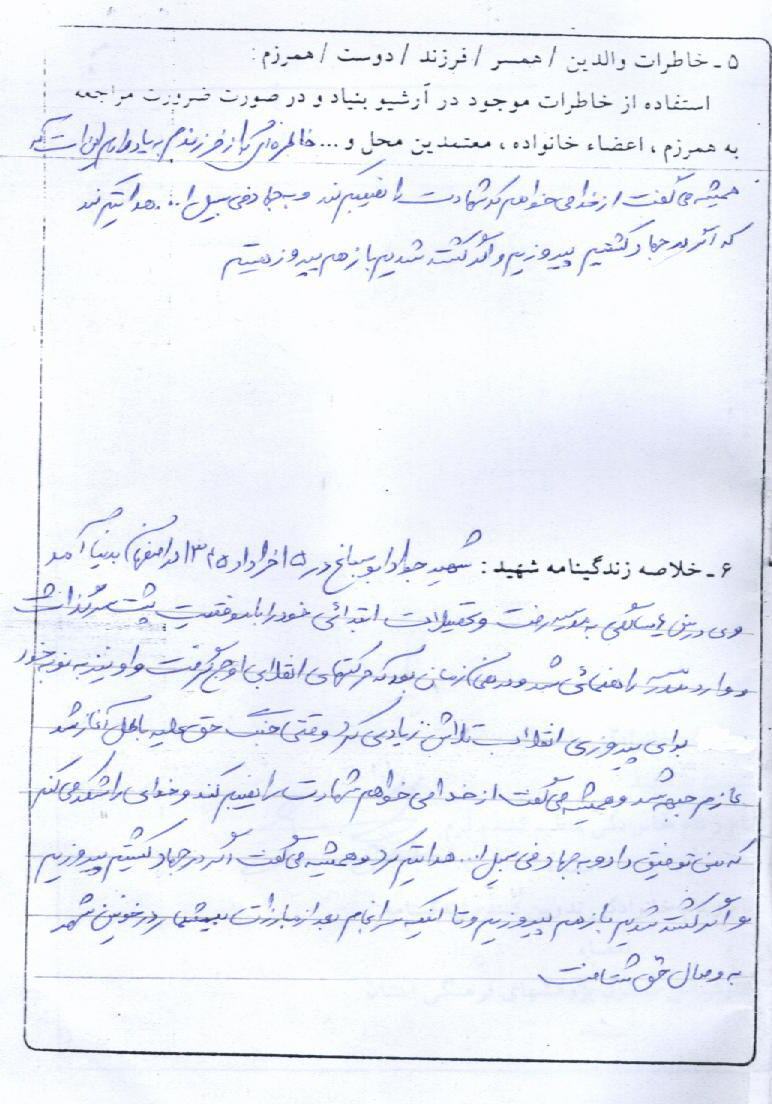 ۵ ـ خاطرات والدین / همسر / فرزند / دوست / همرزم :
استفاده از خاطرات موجود در آرشیو بنیاد و در صورت ضرورت مراجعه
به همرزم ، اعضاء خانواده ، معتمدین محل و ... خاطره‌ای را از فرزندم به یاد دارم این است که
همیشه می گفت از خدا می خواهم که شهادت را نصیبم کند و به جهاد فی سبیل ا... هدایتم کند
که اگر در جهاد کشتیم پیروزیم و اگر کشته شدیم باز هم پیروز هستیم
۶ ـ خلاصه زندگینامه شهید : شهید جواد در ۵ خرداد ۱۳۴۵ در اصفهان بدنیا آمد
وی در سن سالگی به مدرسه رفت و تحصیلات ابتدائی خود را با موفقیت پشت سر گذاشت
و وارد مدرسه راهنمائی شد و در همان زمان بود که حرکتهای انقلابی اوج گرفت و او نیز به نوبه خود
برای پیروزی انقلاب تلاش زیادی کرد وقتی جنگ حق علیه باطل آغاز شد
عازم جبهه شد و همیشه می گفت از خدا می خواهم شهادت را نصیبم کند و خدای را شکر می کنم
که بمن توفیق داد و به جهاد فی سبیل ا... هدایتم کرد و همیشه می گفت اگر در جهاد کشتیم پیروزیم
و اگر کشته شدیم باز هم پیروزیم و تا اینکه سرانجام بعد از مبارزات بیشمار در خونین شهر
به وصال حق شتافت